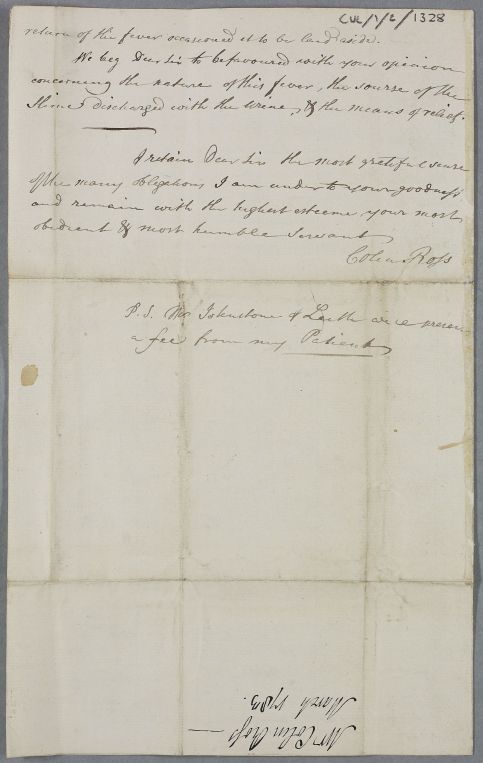 CUL/1/2/1328
return of the fever occasioned it to be laid aside.
We beg Dear Sir to be favoured with your opinion
concerning the nature of this fever, the source of the
slime discharged with the urine, & the means of relief.
I retain Dear Sir the most grateful sense
of the many obligations I am under to your goodness
and remain with the highest esteem your most
obedient & most humble Servant
Colin Ross
P.S. Mr Johnstone of Leith will present
a fee from my Patient
Mr Colin Ross
March 1783.